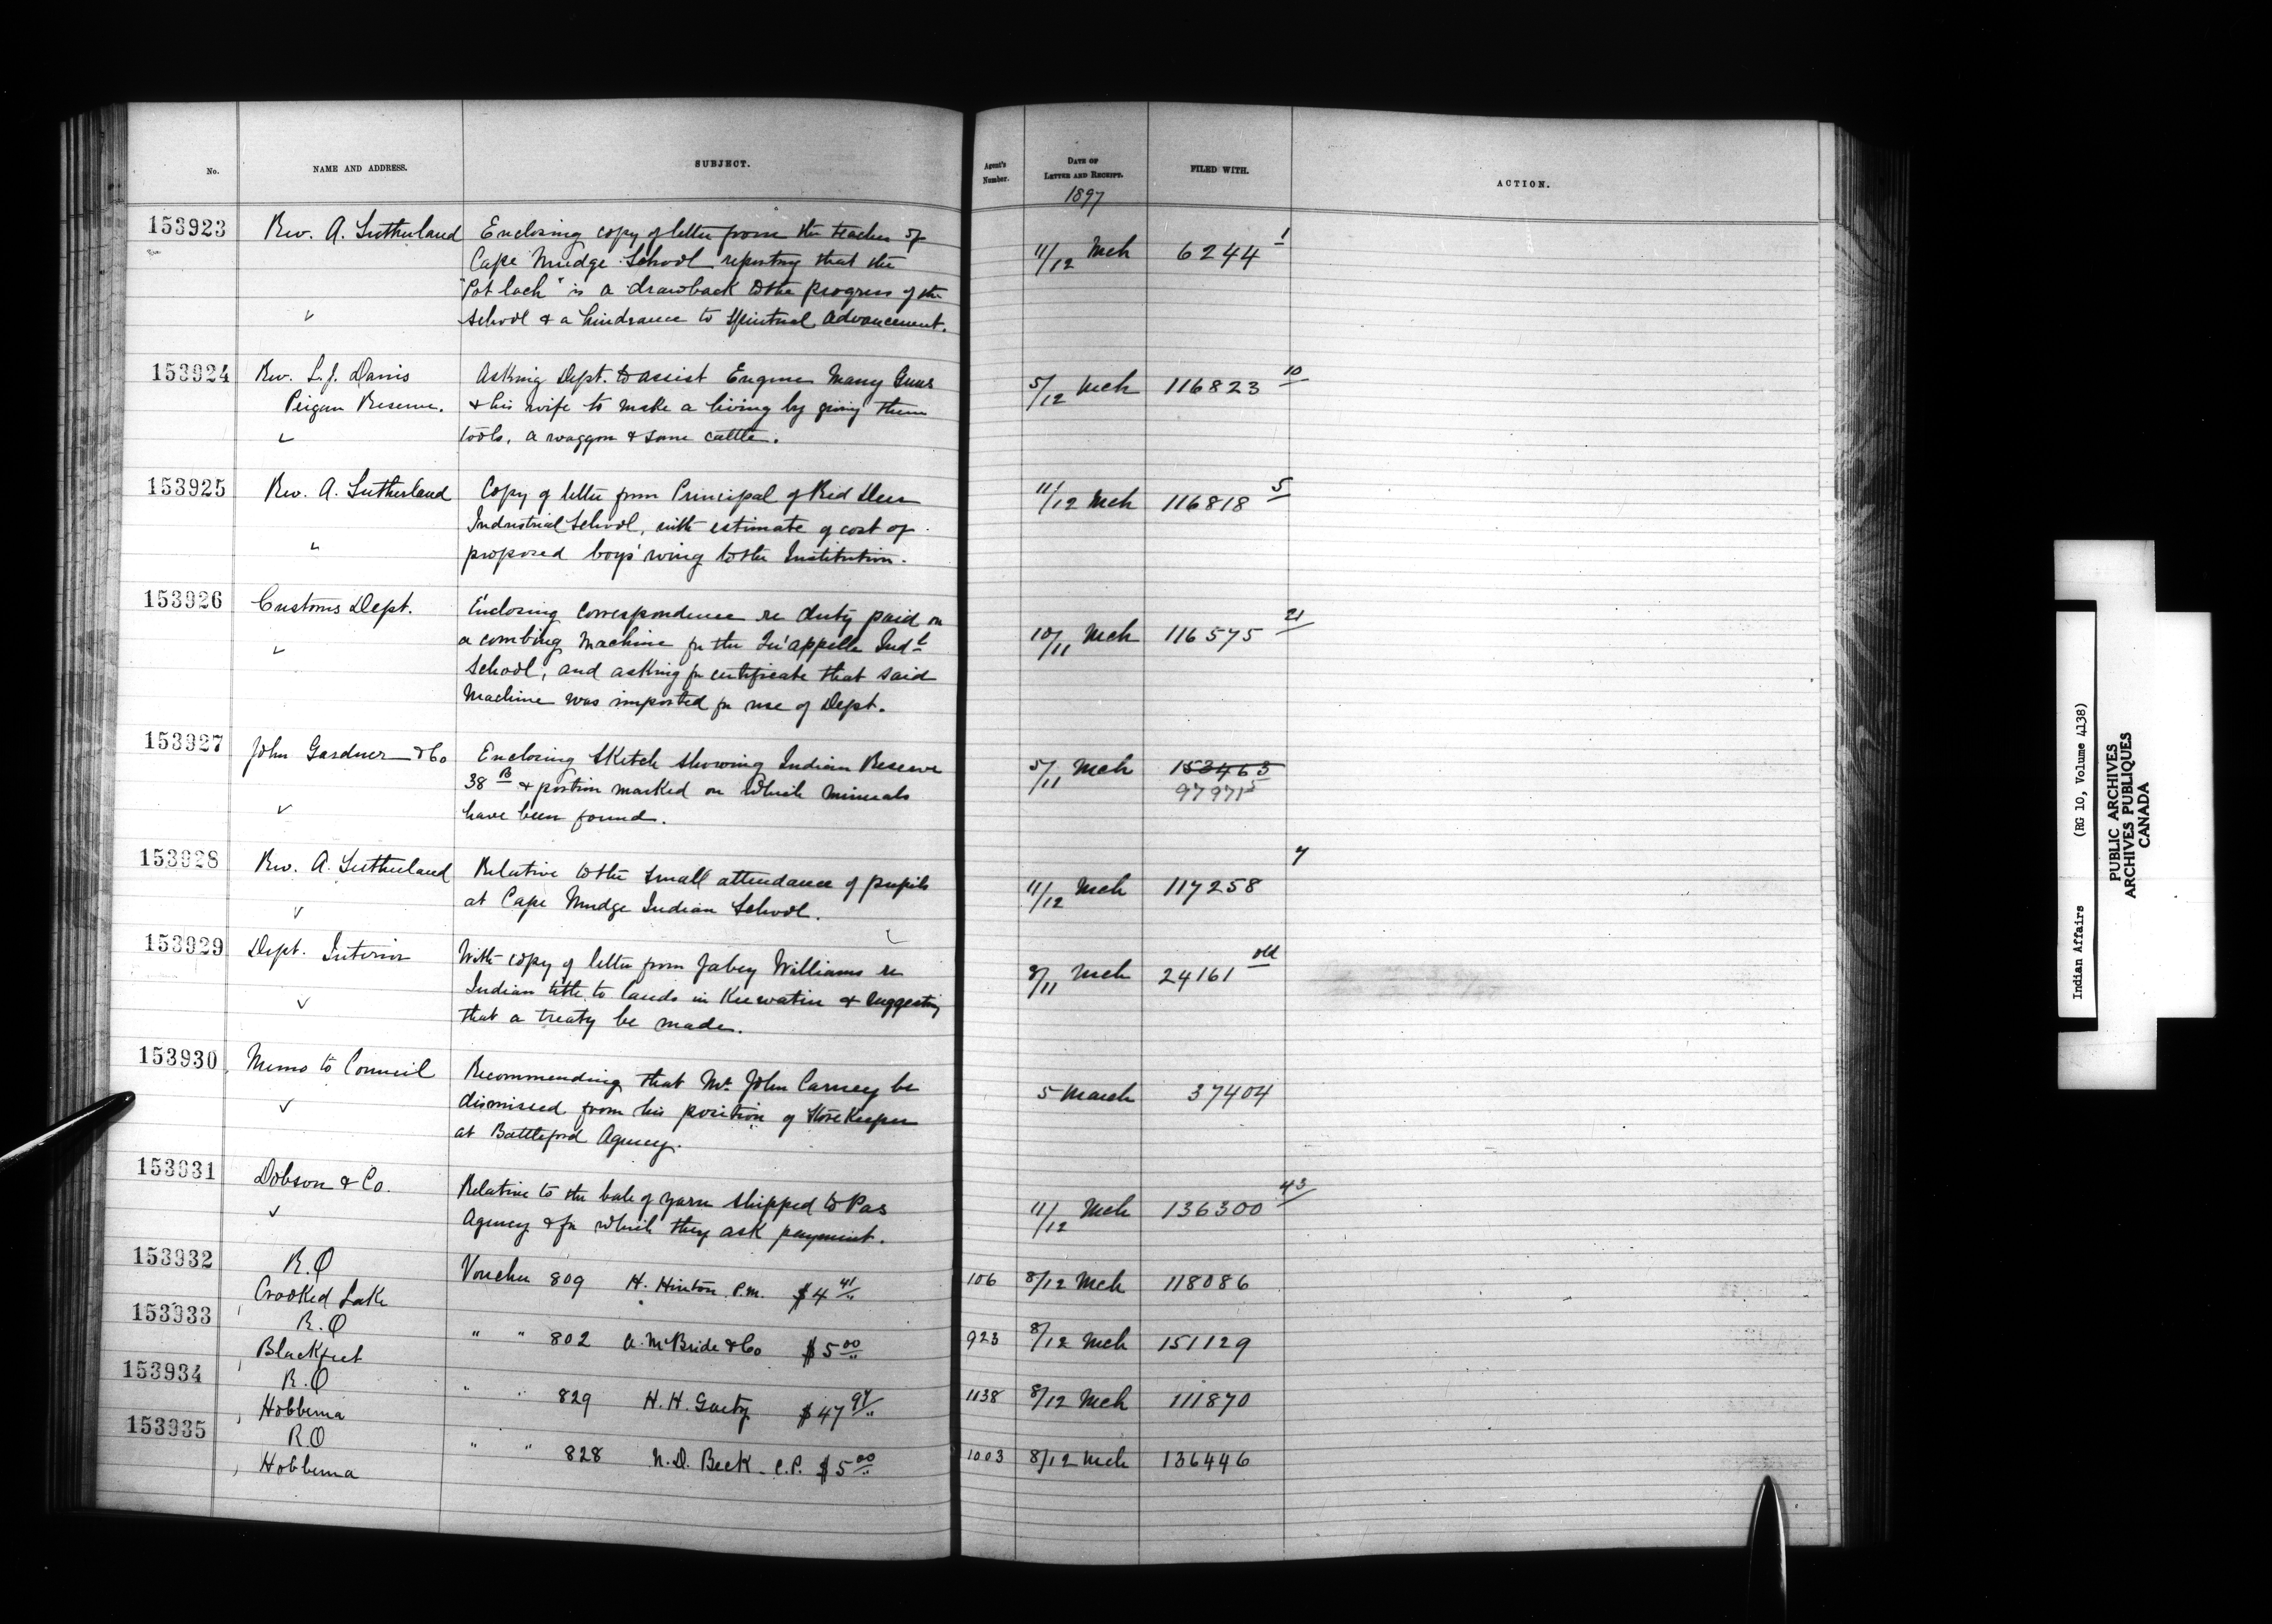 No. NAME AND ADDRESS. SUBJECT. Agent's Number. DATE OF LETTER AND RECEIPT. FILED WITH. ACTION.
1897
153923 Rev. A. Sutherland Enclosing copy of letter from the teacher of
Cape Mudge School reporting that the 11/12 Mch 6244 1
"Pot lach" is a drawback to the progress of the
School & a hindrance to Spiritual Advancement.
153924 Rev. L. J. Davis Asking Dept. to assist Eugene Many Guns 5/12 Mch 116823 10
Peigan Reserve. & his wife to make a living by giving them
tools, a waggon & some cattle.
153925 Rev. A. Sutherland Copy of letter from Principal of Red Deer 11/12 Mch 116818 5
Industrial School, with estimate of cost of
proposed boys' wing to the Institution.
153926 Customs Dept. Enclosing correspondence re duty paid on
a combing machine for the Qu'appelle Indl 10/11 Mch 116575 21
School, and asking for certificate that said
Machine was imported for use of Dept.
153927 John Gardner & Co Enclosing Sketch showing Indian Reserve 5/11 Mch 153463
38 B & portion marked on which minerals 97971 5
have been found.
153928 Rev. A. Sutherland Relative to the small attendance of pupils 11/12 Mch 117258 7
at Cape Mudge Indian School.
153929 Dept. Interior With copy of letter from Jabez Williams re 8/11 Mch 24161 old
Indian title to lands in Keewatin & suggesting
that a treaty be made.
153930 Memo to Council Recommending that Mr John Carney be
dismissed from his position of Storekeeper 5 March 37404
at Battleford Agency.
153931 Dobson & Co. Relative to the bale of yarn shipped to Pas 11/12 Mch 136300 43
Agency & for which they ask payment.
153932 R.O Voucher 809 H. Hinton P.M. $4 41 106 8/12 Mch 118086
Crooked Lake
153933 R.O " " 802 A. McBride & Co $5 00 923 8/12 Mch 151129
Blackfeet
153934 R.O " " 829 H. H. Gaetz $47 97 1138 8/12 Mch 111870
Hobbema
153935 R.O " " 828 N. D. Beck. C.P. $5 00 1003 8/12 Mch 136446
Hobbema
Indian Affairs (RG 10, Volume 4138)
PUBLIC ARCHIVES
ARCHIVES PUBLIQUES
CANADA